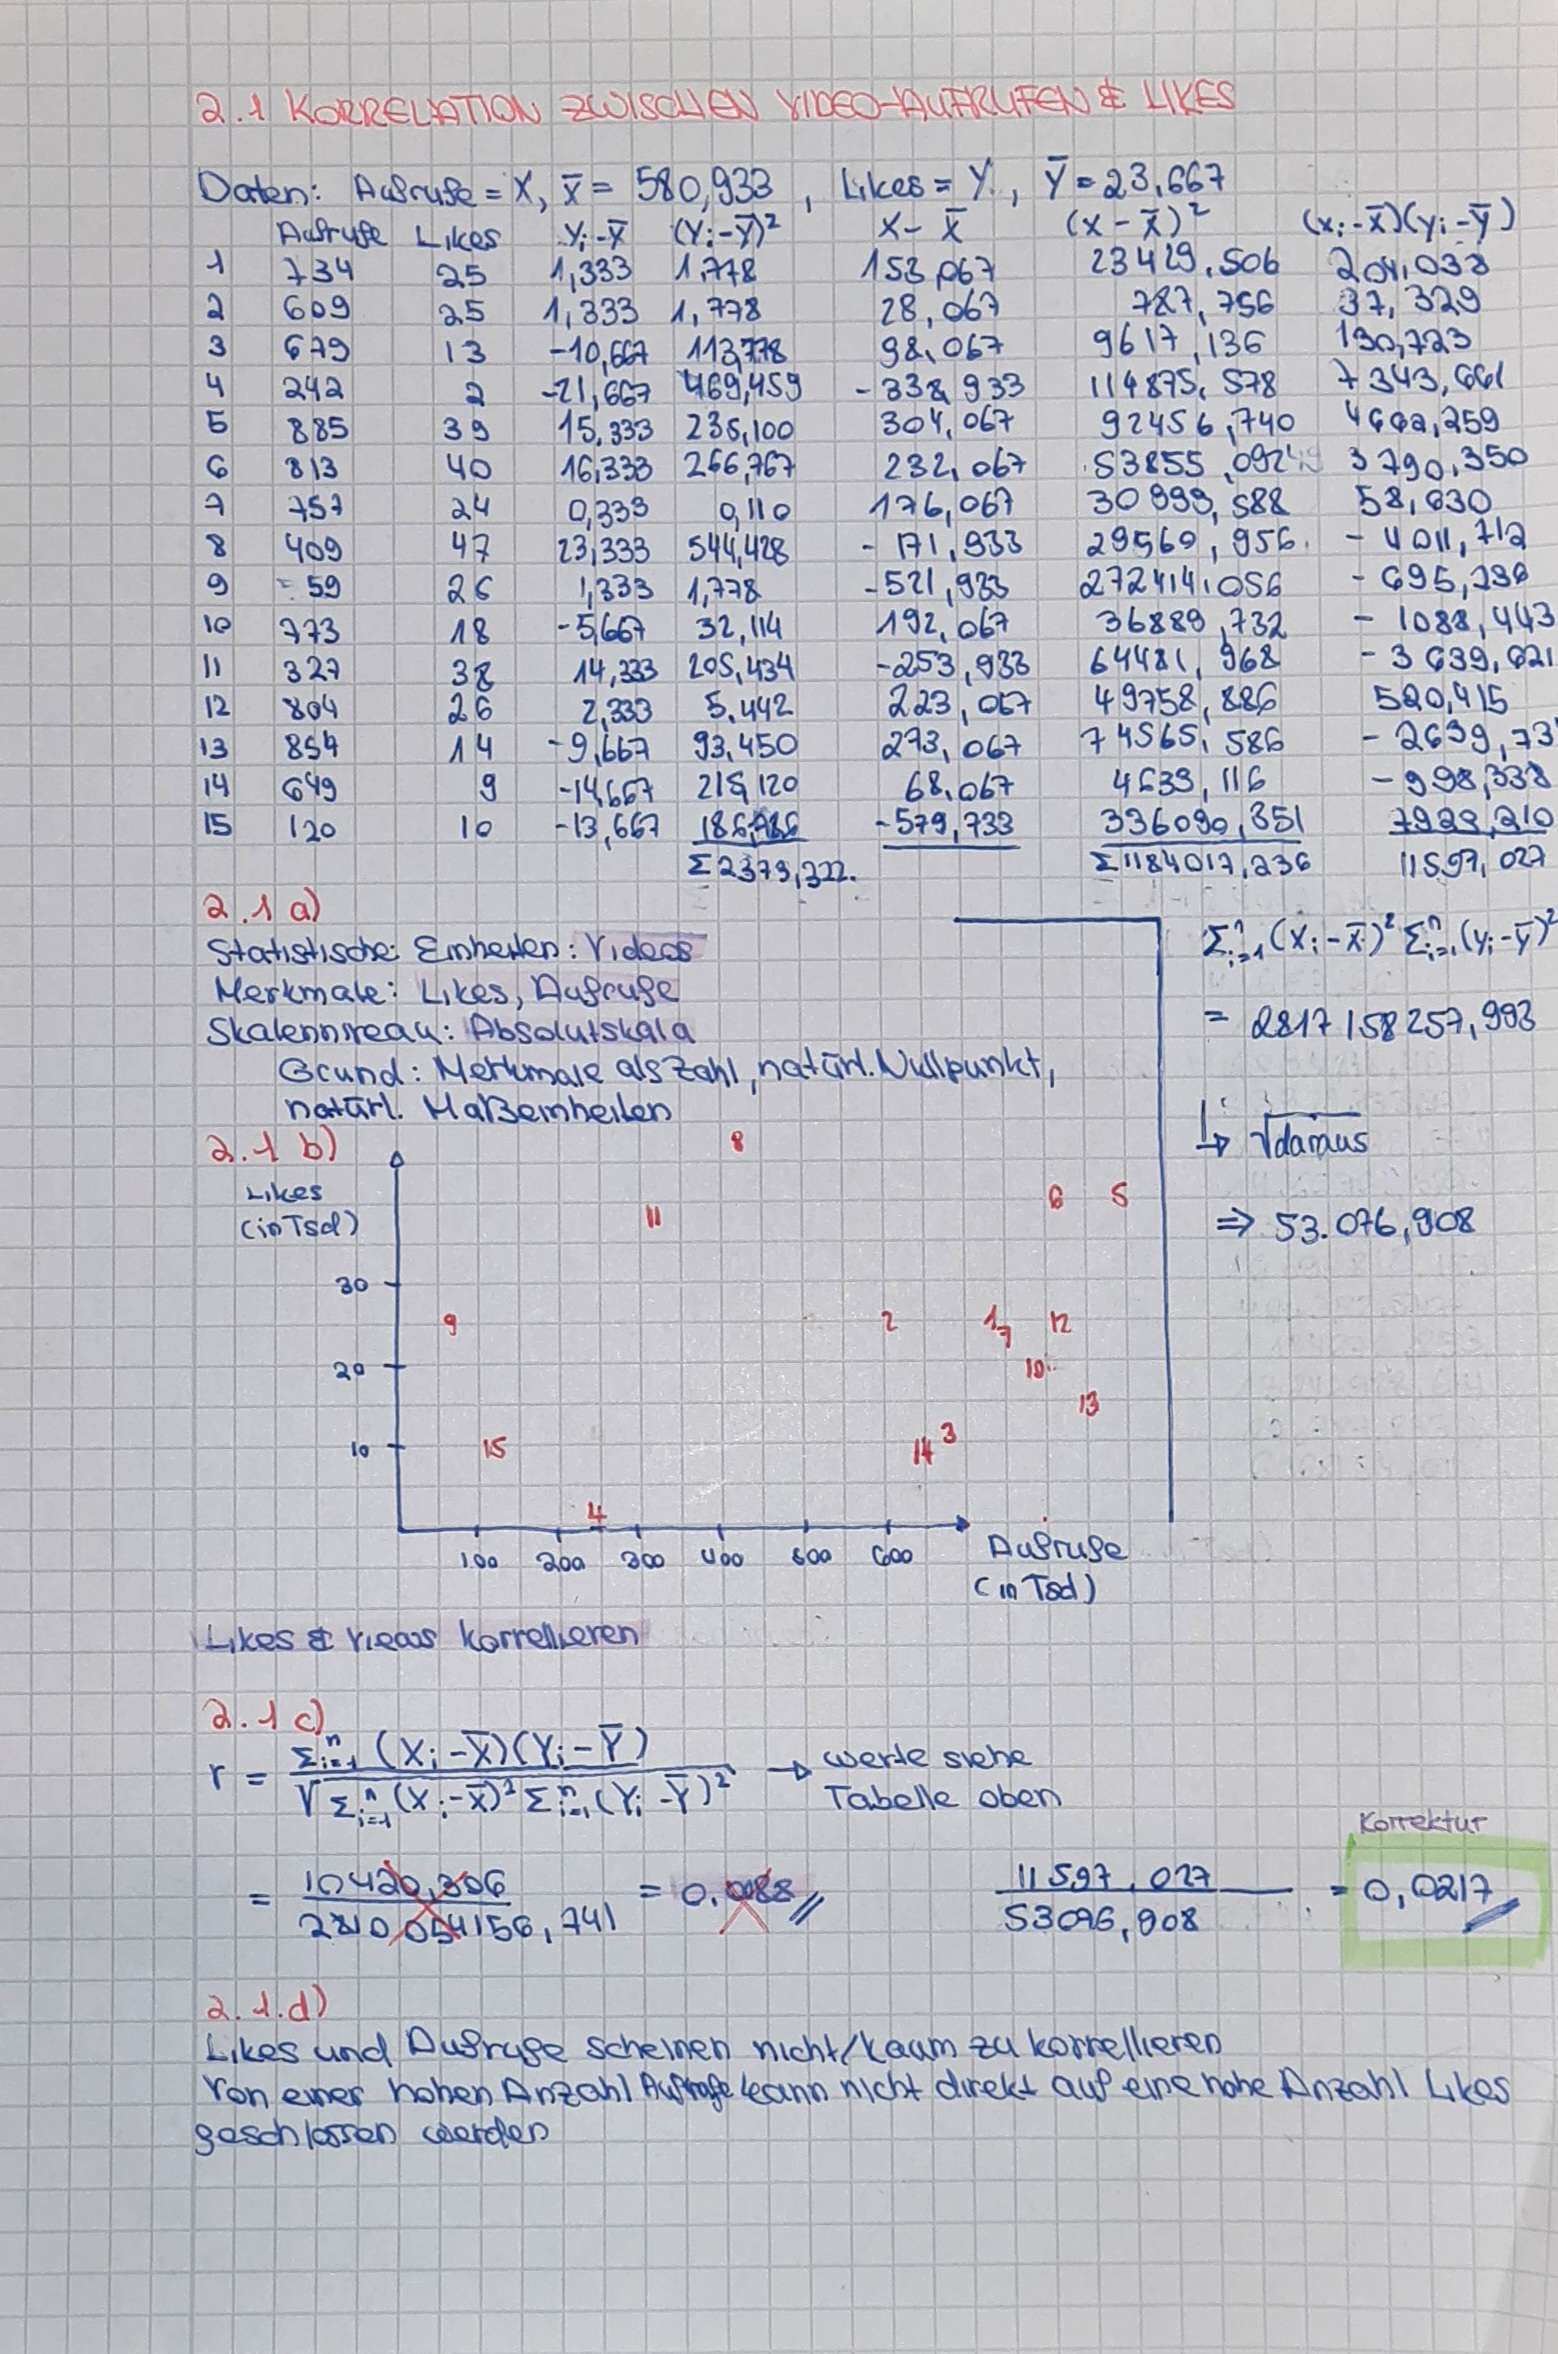 2.1 KORRELATION ZWISCHEN VIDEO-AUFRUFEN & LIKES
Daten: Aufrufe = X, x̄ = 580,933, Likes = Y, Ȳ = 23,667
Aufrufe Likes Yi-Ȳ (Yi-Ȳ)² X-X̄ (X-X̄)² (xi-x̄)(yi-ȳ)
1 734 25 1,333 1,778 153,067 23429,506 204,038
2 609 25 1,333 1,778 28,067 787,756 37,329
3 679 13 -10,667 113,778 98,067 9617,136 130,723
4 242 2 -21,667 469,459 -338,933 114875,578 7343,661
5 885 39 15,333 235,100 304,067 92456,740 4662,259
6 813 40 16,333 266,767 232,067 53855,092 3790,350
7 757 24 0,333 0,110 176,067 30999,588 58,630
8 409 47 23,333 544,428 -171,933 29560,956 -4011,712
9 59 26 1,333 1,778 -521,933 272414,056 -695,736
10 773 18 -5,667 32,114 192,067 36889,732 -1088,443
11 327 38 14,333 205,434 -253,933 64481,968 -3639,621
12 804 26 2,333 5,442 223,067 49758,886 520,415
13 854 14 -9,667 93,450 273,067 74565,586 -2639,73
14 649 9 -14,667 215,120 68,067 4633,116 -998,338
15 120 10 -13,667 186,786 -579,733 336090,351 7923,210
Σ2373,322. Σ1184017,236 11597,027
2.1 a)
Statistische Einheiten: Videos
Merkmale: Likes, Aufrufe
Skalenniveau: Absolutskala
Grund: Merkmale als Zahl, natürl. Nullpunkt,
natürl. Maßeinheiten
Σⁿi=1 (Xi-x̄)² Σⁿi=1 (yi-ȳ)²
= 2817158257,993
↳ √daraus
⇒ 53.076,908
2.1 b)
Likes
(in Tsd)
8
6 5
11
30
9 2 1 7 12
20
10
13
10
15 14 3
4
100 200 300 400 500 600
Aufrufe
(in Tsd)
Likes & Views korrellieren
2.1 c)
r = Σⁿi=1 (Xi-X̄)(Yi-Ȳ) / √Σⁿi=1 (Xi-X̄)² Σⁿi=1 (Yi-Ȳ)² → werte siehe
Tabelle oben
Korrektur
= 10420,306 / 2810054156,741 = 0,088 11597,027 / 53076,908 = 0,0217
2.1.d)
Likes und Aufrufe scheinen nicht/kaum zu korrellieren
Von einer hohen Anzahl Aufrufe kann nicht direkt auf eine hohe Anzahl Likes
geschlossen werden